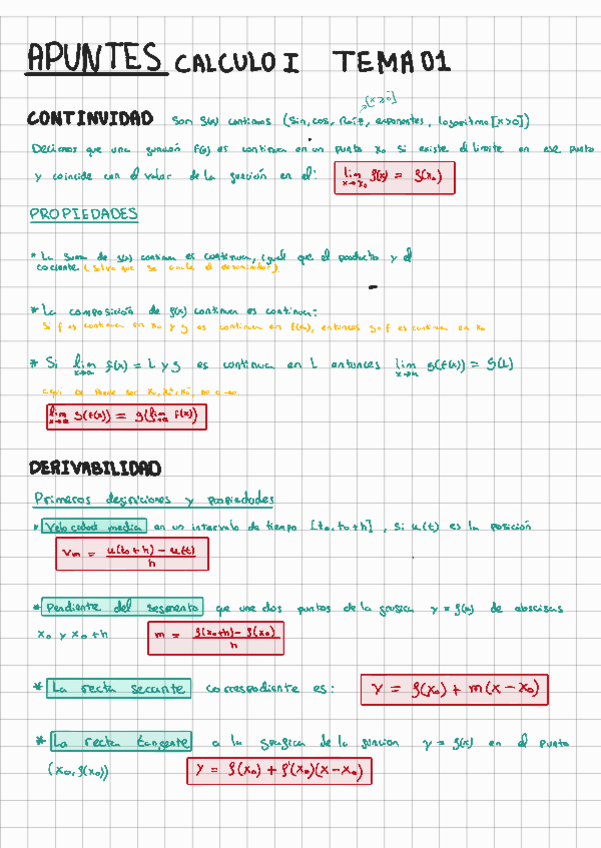 APUNTES CALCULO I TEMA 01
[x≥0]
CONTINUIDAD Son f(x) continuas (sin, cos, Raíz, exponentes, logaritmo [x>0])
Decimos que una función f(x) es continua en un punto x₀ si existe el límite en ese punto
y coincide con el valor de la función en él: lim x→x₀ f(x) = f(x₀)
PROPIEDADES
* La suma de f(x) continua es continua, igual que el producto y el
cociente (salvo que se anule el denominador).
* La composición de f(x) continua es continua:
Si f es continua en x₀ y g es continua en f(x₀), entonces g∘f es continua en x₀
* Si lim x→a f(x) = L y g es continua en L entonces lim x→a g(f(x)) = g(L)
lim x→a g(f(x)) = g(lim x→a f(x))
DERIVABILIDAD
Primeras definiciones y propiedades
* Velocidad media en un intervalo de tiempo [t₀, t₀+h], si u(t) es la posición
Vm = u(t₀+h) - u(t) / h
* Pendiente del segmento que une dos puntos de la grafica y = f(x) de abscisas
x₀ y x₀+h m = f(x₀+h) - f(x₀) / h
* La recta secante correspodiente es: y = f(x₀) + m(x-x₀)
* La recta tangente a la grafica de la funcion y = f(x) en el punto
(x₀, f(x₀)) y = f(x₀) + f'(x₀)(x-x₀)